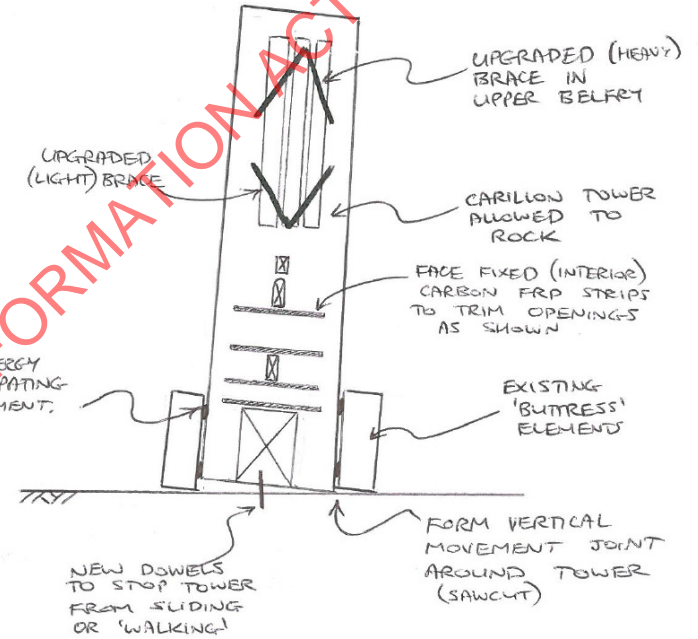 UPGRADED (HEAVY)
BRACE IN
UPPER BELFRY
UPGRADED
(LIGHT) BRACE
CARILLON TOWER
ALLOWED TO
ROCK
FACE FIXED (INTERIOR)
CARBON FRP STRIPS
TO TRIM OPENINGS
AS SHOWN
ERGY
PATING
MENT.
EXISTING
'BUTTRESS'
ELEMENTS
FORM VERTICAL
MOVEMENT JOINT
AROUND TOWER
(SAWCUT)
NEW DOWELS
TO STOP TOWER
FROM SLIDING
OR 'WALKING'
FORMATION ACT